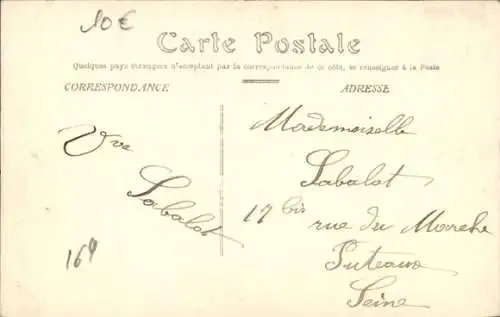 10€
Carte Postale
Quelques pays étrangers n'acceptant pas la correspondance de ce côté, se renseigner à la Poste
CORRESPONDANCE
ADRESSE
Mademoiselle
Vve
Sabalot
Sabalot
17 bis
rue du Marche
Puteaux
Seine
164